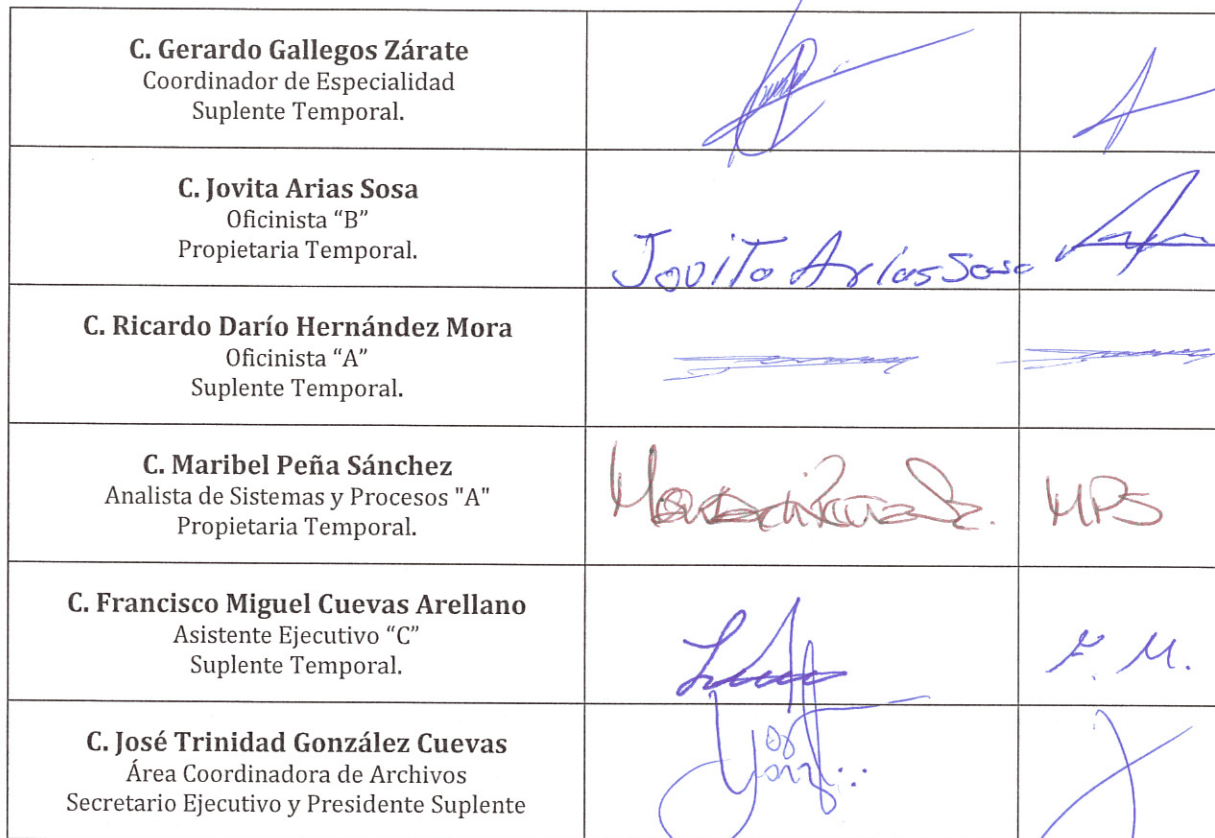 C. Gerardo Gallegos Zárate
Coordinador de Especialidad
Suplente Temporal.
C. Jovita Arias Sosa
Oficinista “B”
Propietaria Temporal.
Jovita Arias Sosa
C. Ricardo Darío Hernández Mora
Oficinista “A”
Suplente Temporal.
C. Maribel Peña Sánchez
Analista de Sistemas y Procesos "A"
Propietaria Temporal.
MPS
C. Francisco Miguel Cuevas Arellano
Asistente Ejecutivo “C”
Suplente Temporal.
F. M.
C. José Trinidad González Cuevas
Área Coordinadora de Archivos
Secretario Ejecutivo y Presidente Suplente